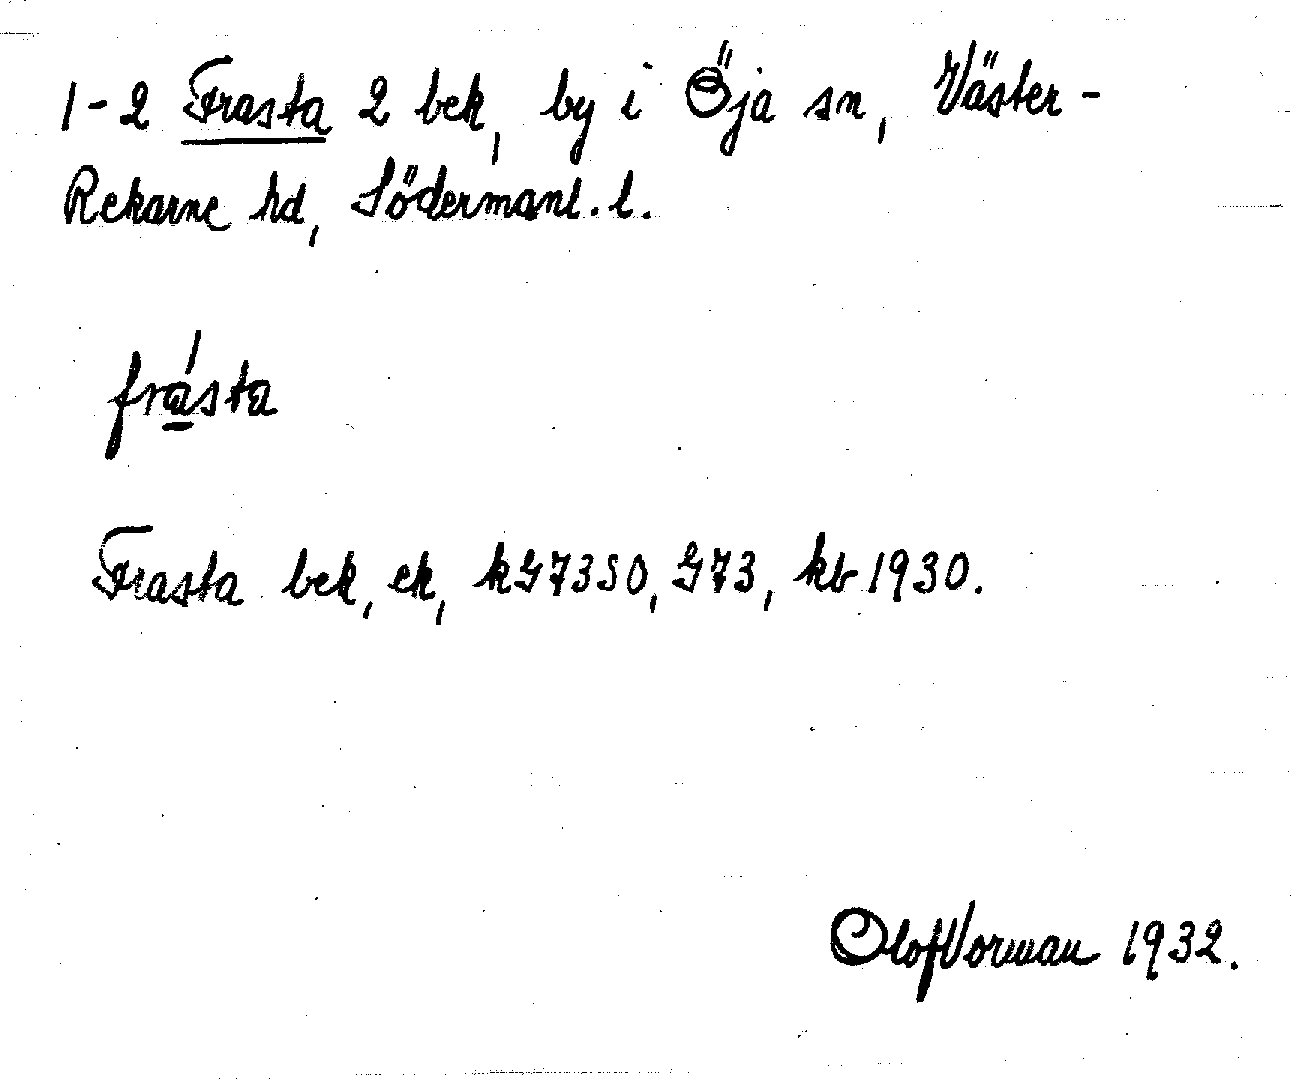 1-2 Frasta 2 bek, by i Öja sn, Väster-
Rekarne hd, Södermanl. l.
frásta
Frasta bek, ek, kG73SO, G73, kb 1930.
Olof Vorman 1932.